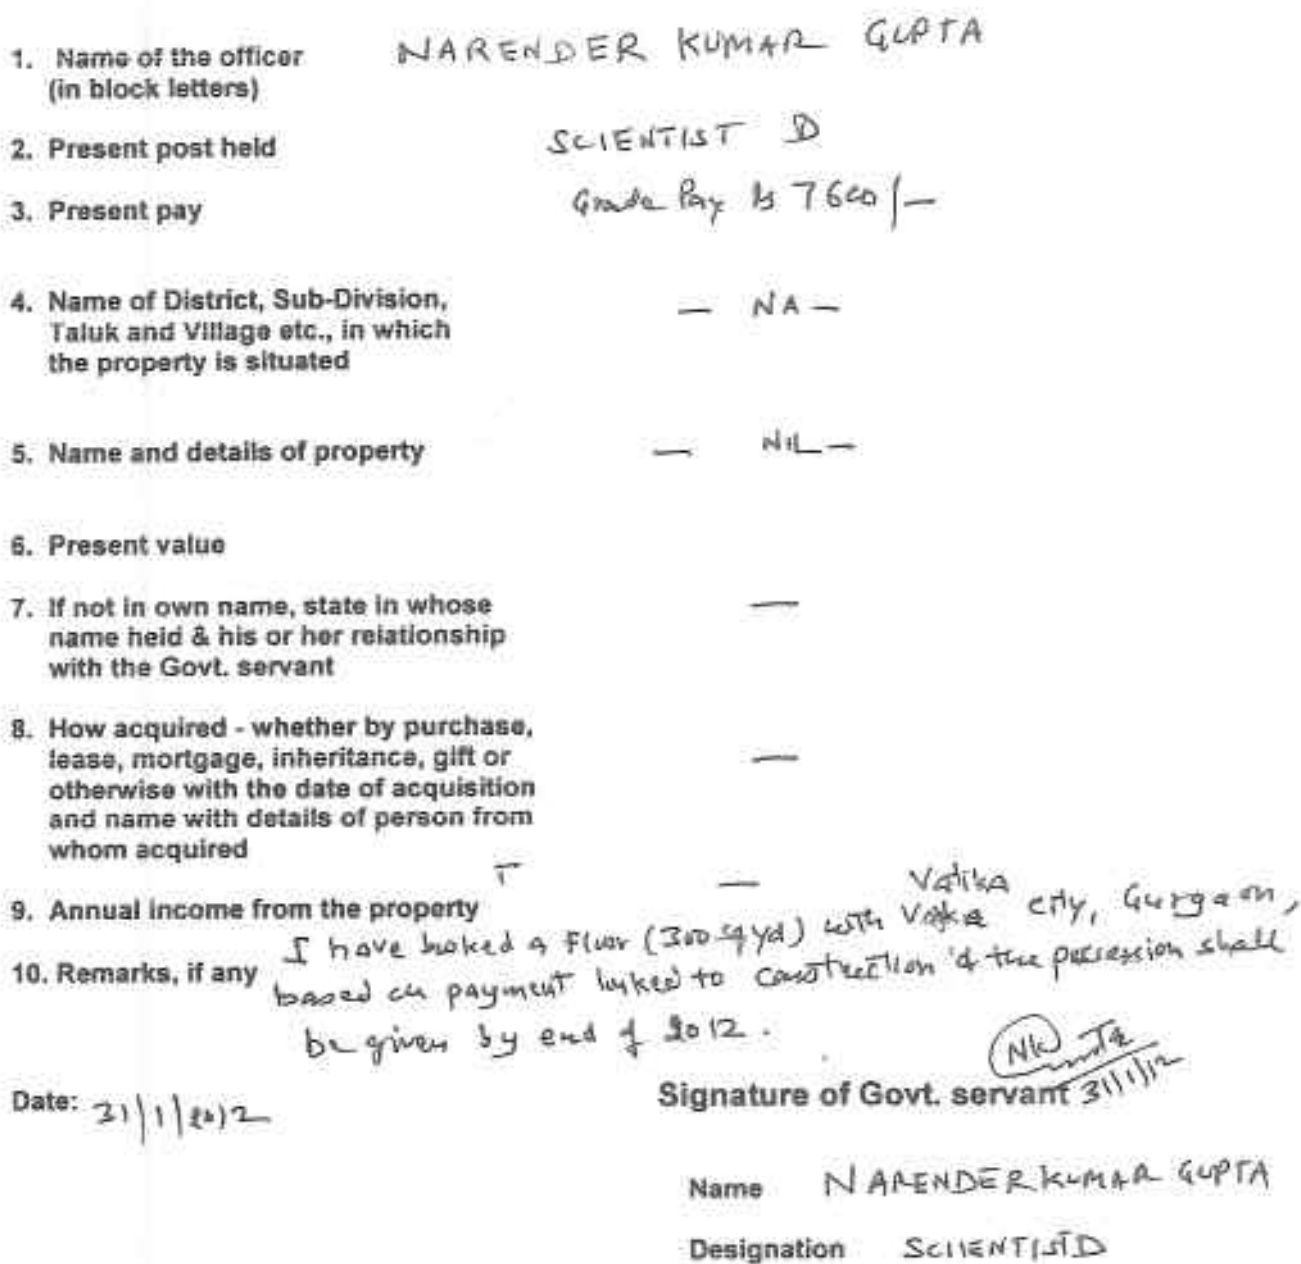 1. Name of the officer NARENDER KUMAR GUPTA
(in block letters)
2. Present post held SCIENTIST D
3. Present pay Grade Pay Rs 7600/-
4. Name of District, Sub-Division, — NA —
Taluk and Village etc., in which
the property is situated
5. Name and details of property — NIL —
6. Present value
7. If not in own name, state in whose —
name held & his or her relationship
with the Govt. servant
8. How acquired - whether by purchase, —
lease, mortgage, inheritance, gift or
otherwise with the date of acquisition
and name with details of person from
whom acquired
9. Annual income from the property —
10. Remarks, if any I have booked a Floor (300 sq yd) with Vatika city, Gurgaon,
based on payment linked to construction & the possession shall
be given by end of 2012.
Date: 31/1/2012
Signature of Govt. servant 31/1/12
Name NARENDER KUMAR GUPTA
Designation SCIIENTIST D